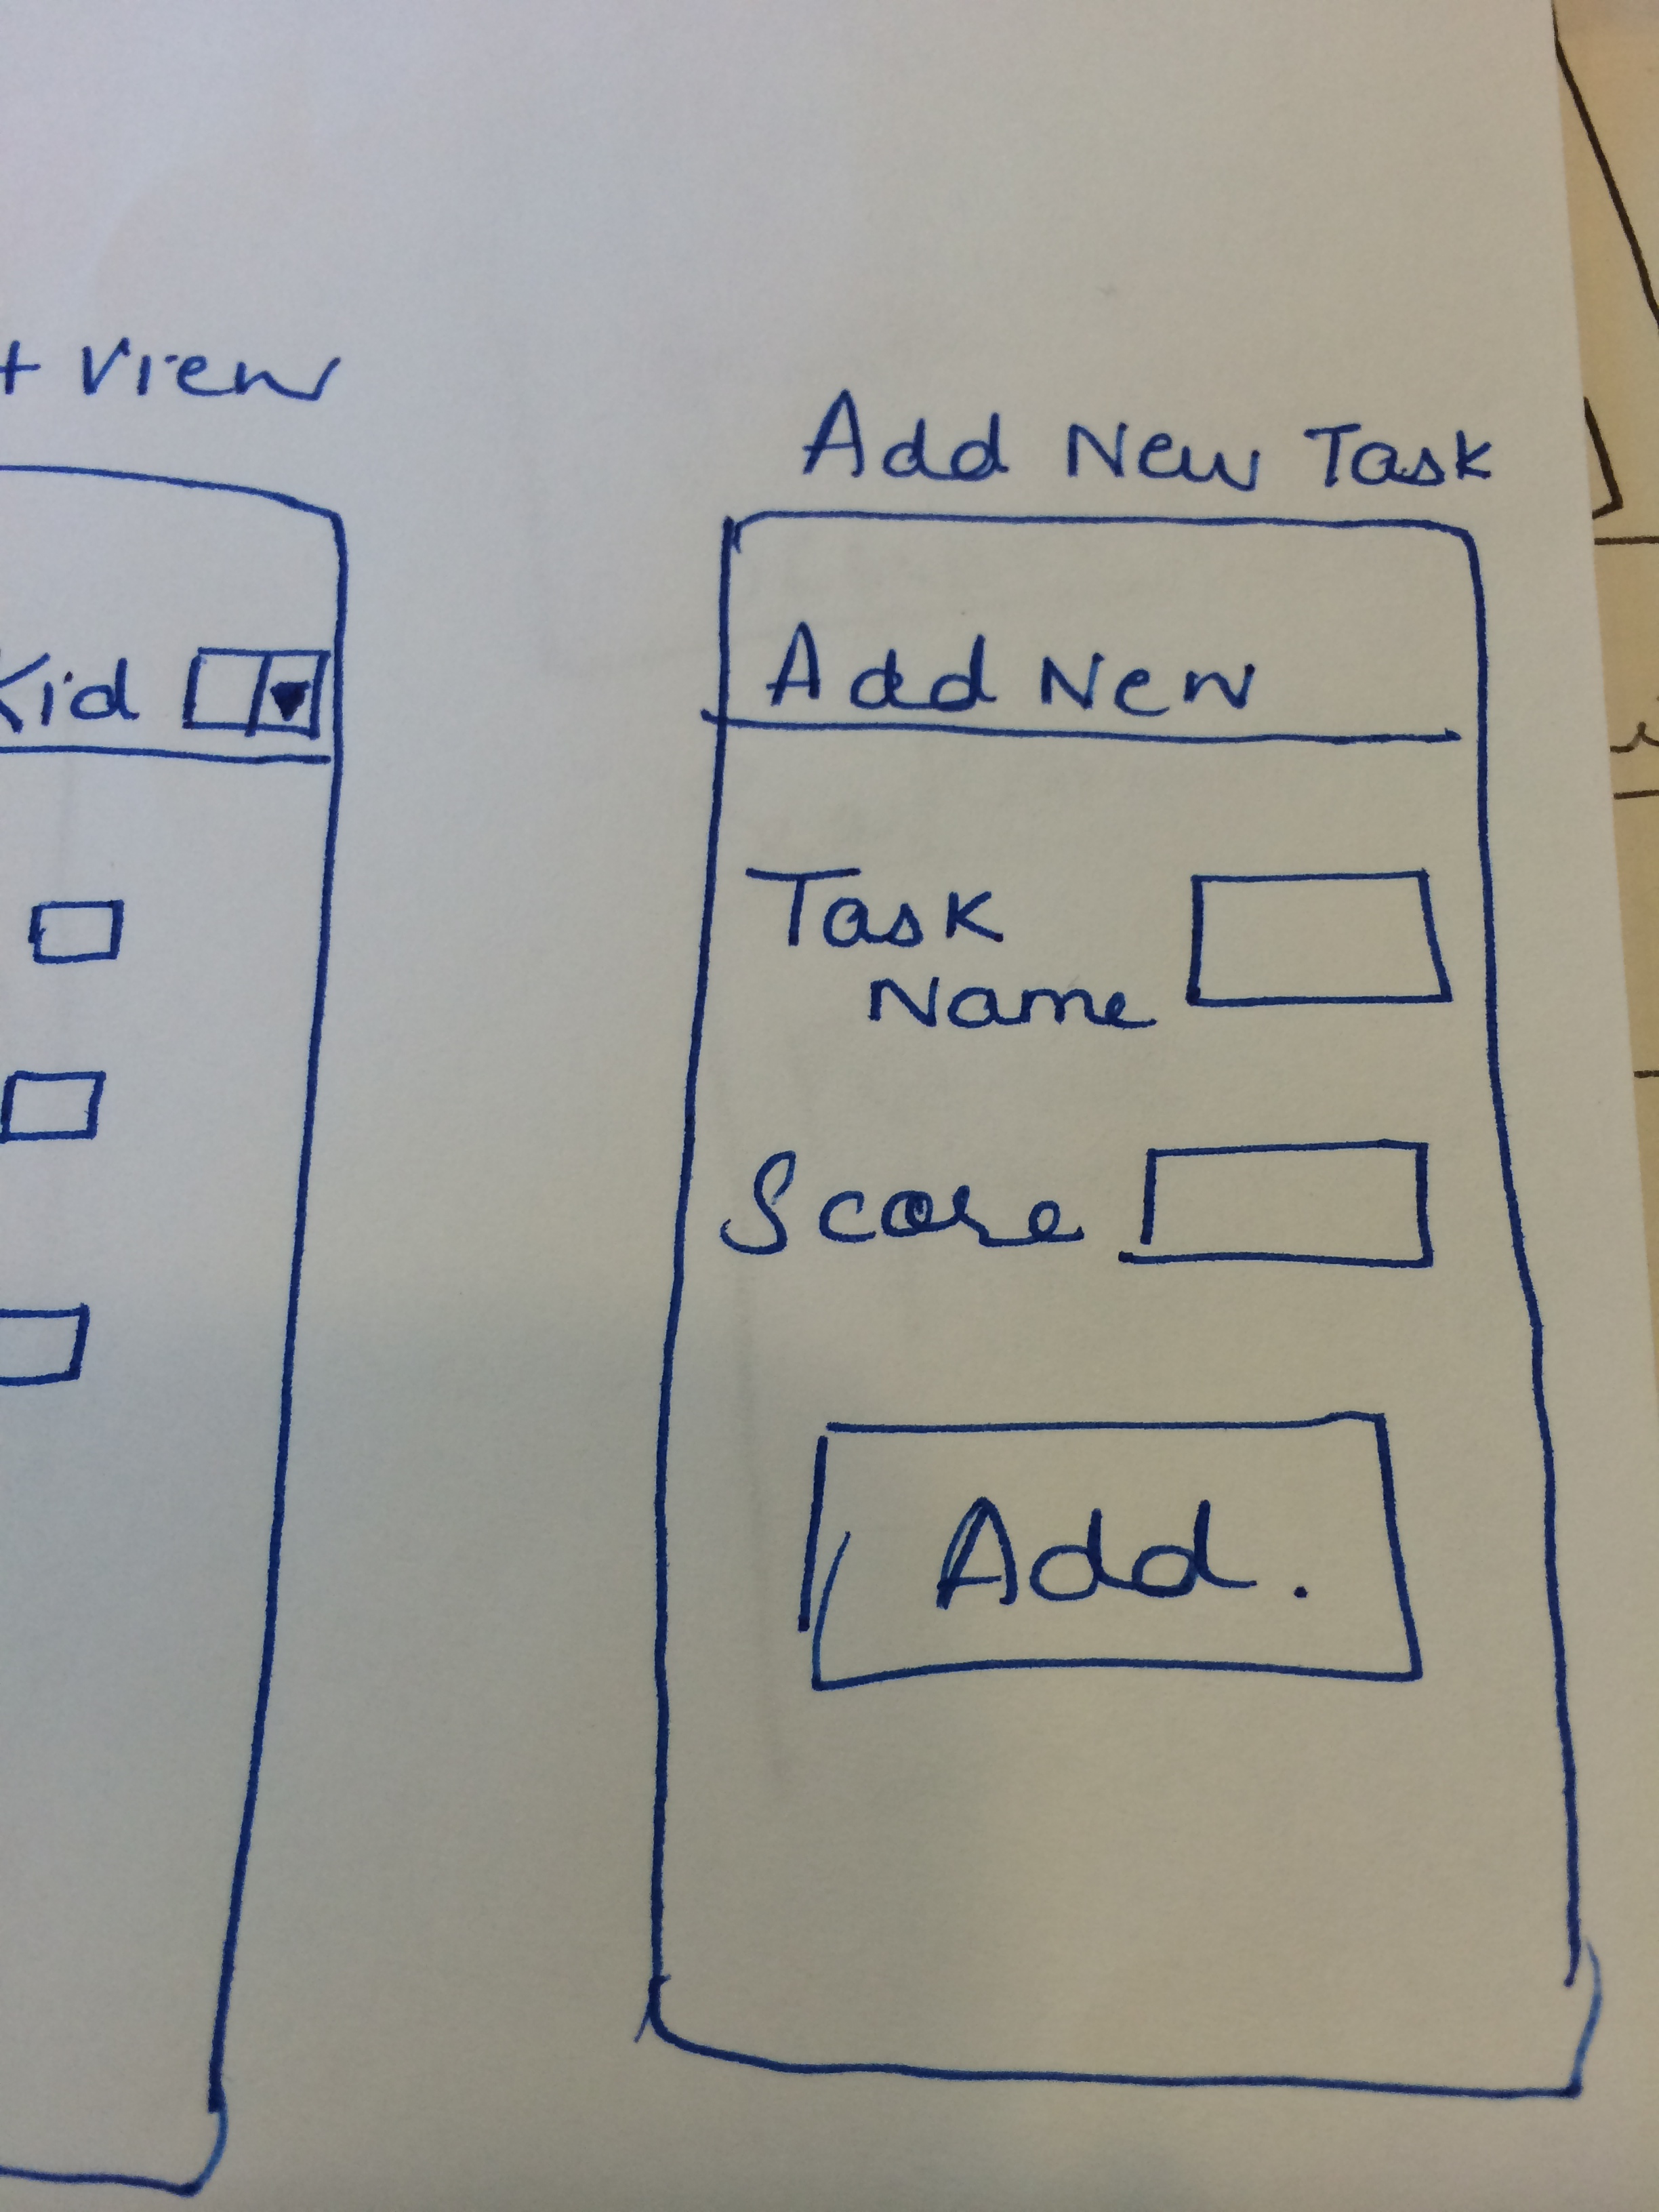 View
Add New Task
Kid
Add New
Task
Name
Score
Add.